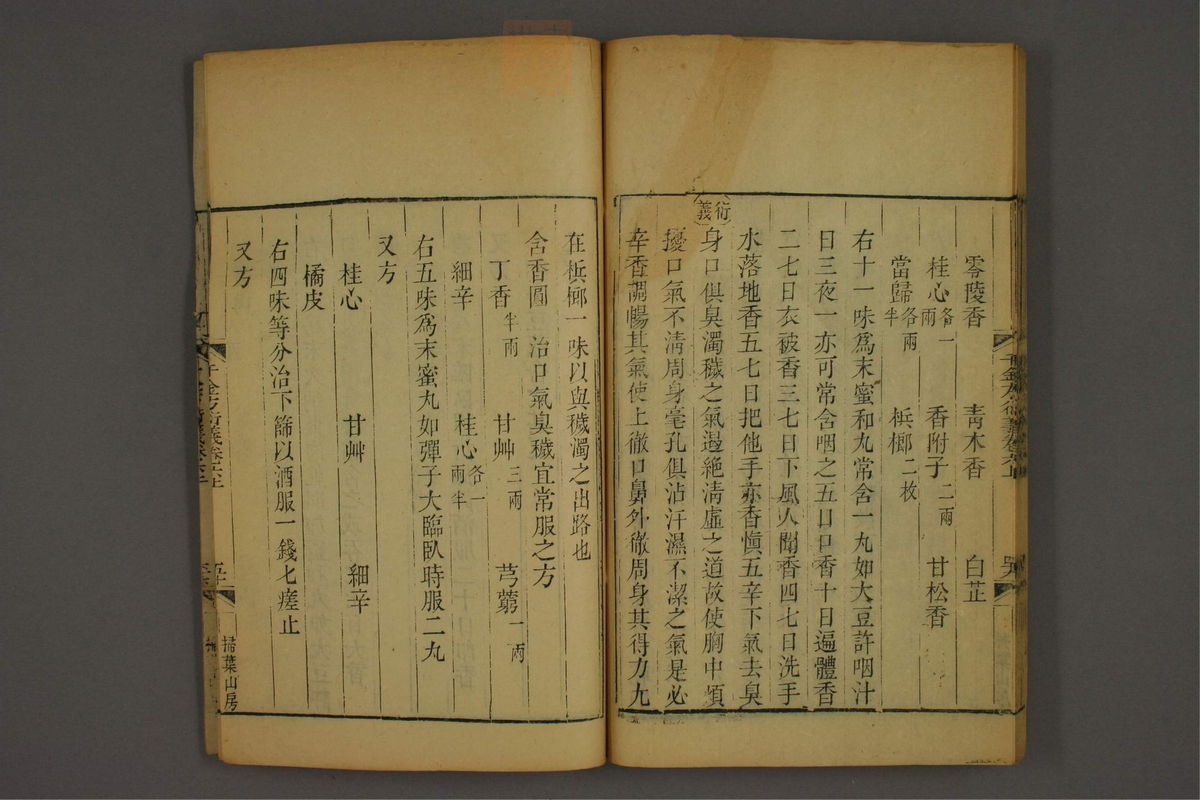 零陵香 青木香 白芷
桂心各一兩 香附子二兩 甘松香
當歸各兩半 梹榔二枚
右十一味爲末蜜和丸常含一丸如大豆許咽汁
日三夜一亦可常含咽之五日口香十日遍體香
二七日衣被香三七日下風人聞香四七日洗手
水落地香五七日把他手亦香愼五辛下氣去臭
衍義
身口俱臭濁穢之氣遏絶淸虛之道故使胸中煩
擾口氣不淸周身毫孔俱沾汗濕不潔之氣是必
辛香調暢其氣使上徹口鼻外徹周身其得力九
在梹榔一味以與穢濁之出路也
含香圓 治口氣臭穢宜常服之方
丁香半兩 甘艸三兩 芎藭一兩
細辛 桂心各一兩半
右五味爲末蜜丸如彈子大臨臥時服二丸
又方
桂心 甘艸 細辛
橘皮
右四味等分治下篩以酒服一錢七瘥止
又方
千金方衍義卷六上
掃葉山房